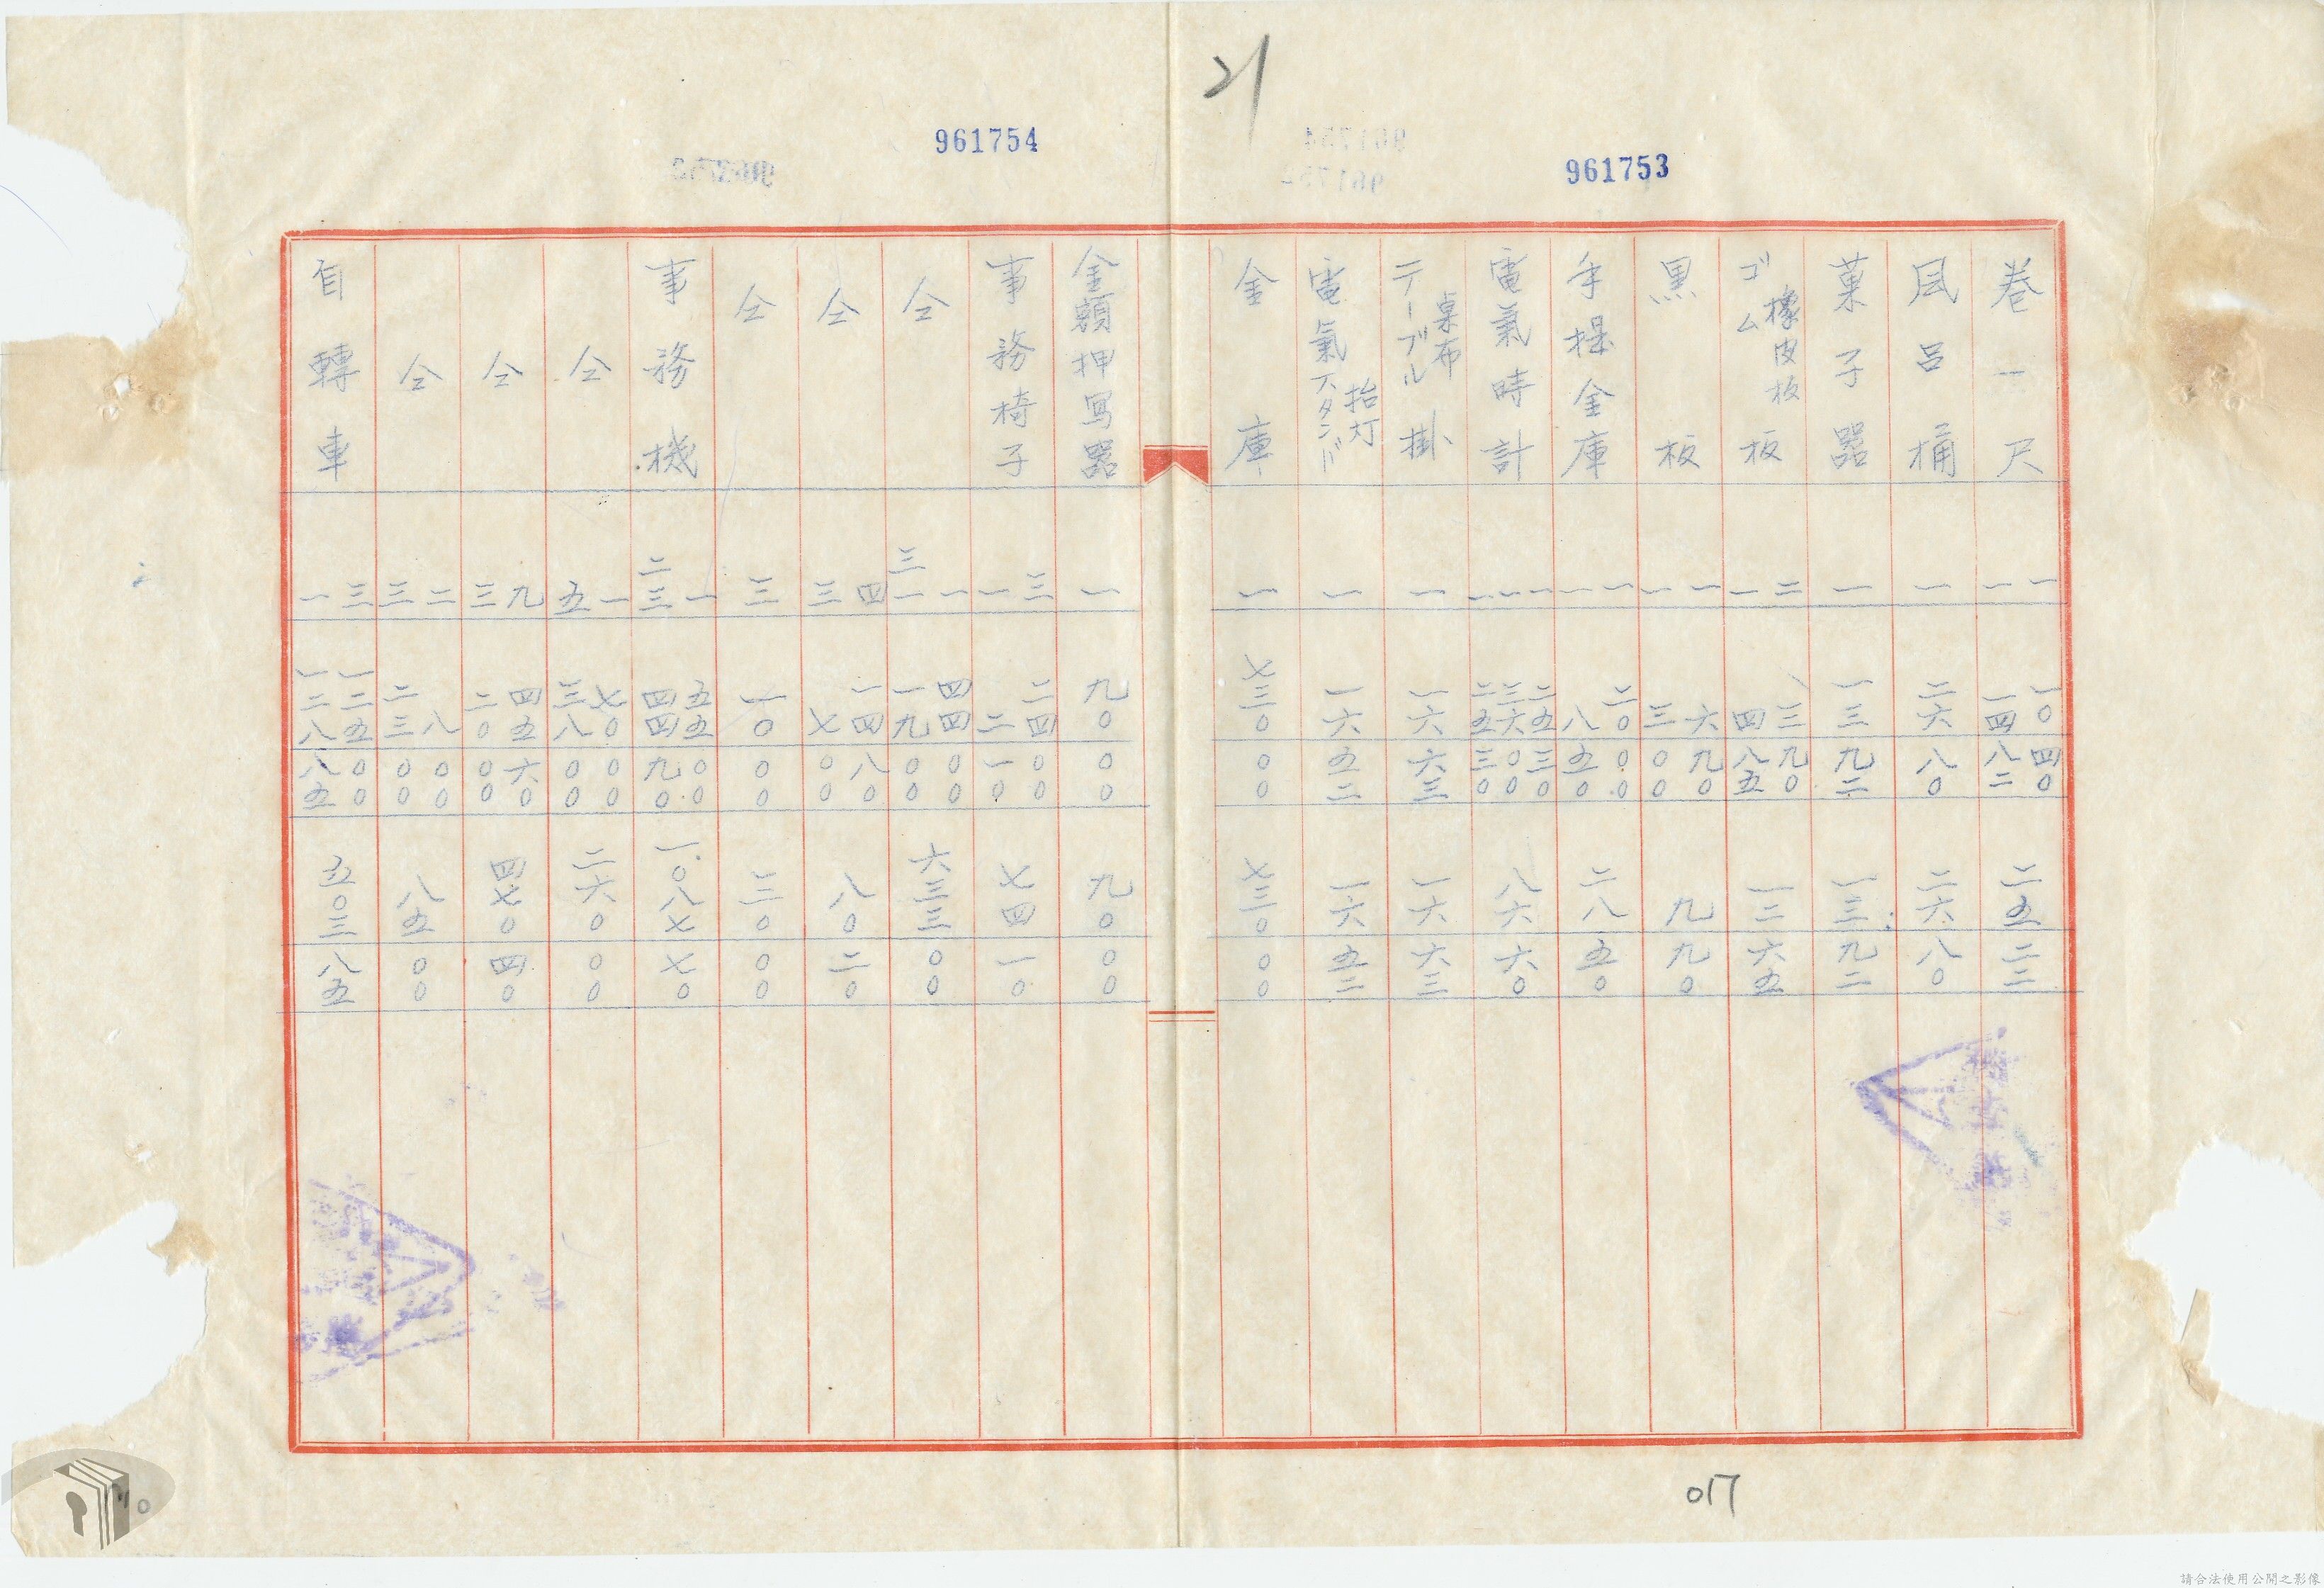 21
961753
961754
卷一尺 一 一 一〇四〇 一四八二 二五二二
風呂桶 一 二六八〇 二六八〇
菓子器 一 一三九二 一三九二
橡皮板
ゴム板 二 一 三九〇 四八五 一二六五
黑板 一 一 六九〇 三〇〇 九九〇
手提金庫 一 一 二〇〇〇 八五〇 二八五〇
電氣時計 一 一 一 二五三〇 三六〇〇 二五三〇 八六六〇
桌布
テーブル掛 一 一六六三 一六六三
抬灯
電氣スタンド 一 一六五二 一六五二
金庫 一 七三〇〇〇 七三〇〇〇
金額押写器 一 九〇〇〇 九〇〇〇
事務椅子 三 一 二四〇〇 二一〇 七四一〇
仝 一 三一 四四〇〇 一九〇〇 六三三〇〇
仝 四 三 一四八〇 七〇〇 八〇二〇
仝 三 一〇〇〇 三〇〇〇
事務機 一 二三 五五〇〇 四四九〇 一〇八七七〇
仝 一 五 七〇〇〇 三八〇〇 二六〇〇〇
仝 九 三 四五六〇 二〇〇〇 四七〇四〇
仝 二 三 八〇〇 二三〇〇 八五〇〇
自轉車 三 一 一二五〇〇 一二八八五 五〇三八五
017
請合法使用公開之影像